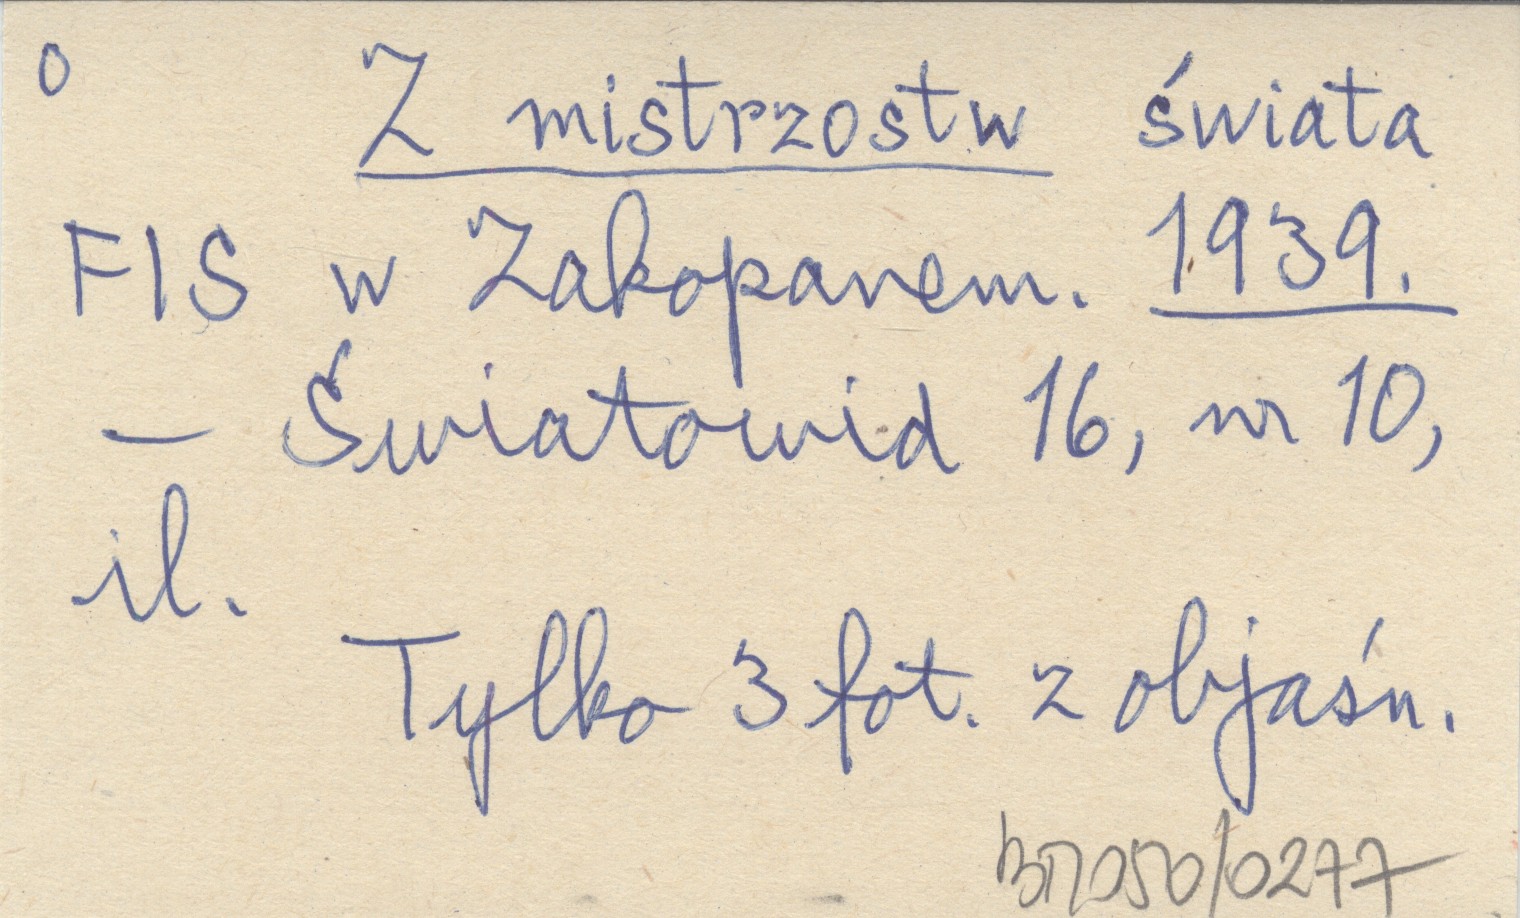 0 Z mistrzostw świata
FIS w Zakopanem. 1939.
— Światowid 16, nr 10,
il.
Tylko 3 fot. z objaśn.
BN050/0277